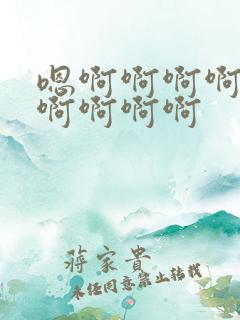 嗯啊啊啊啊
啊啊啊啊
蒋家贵
未经同意禁止转载